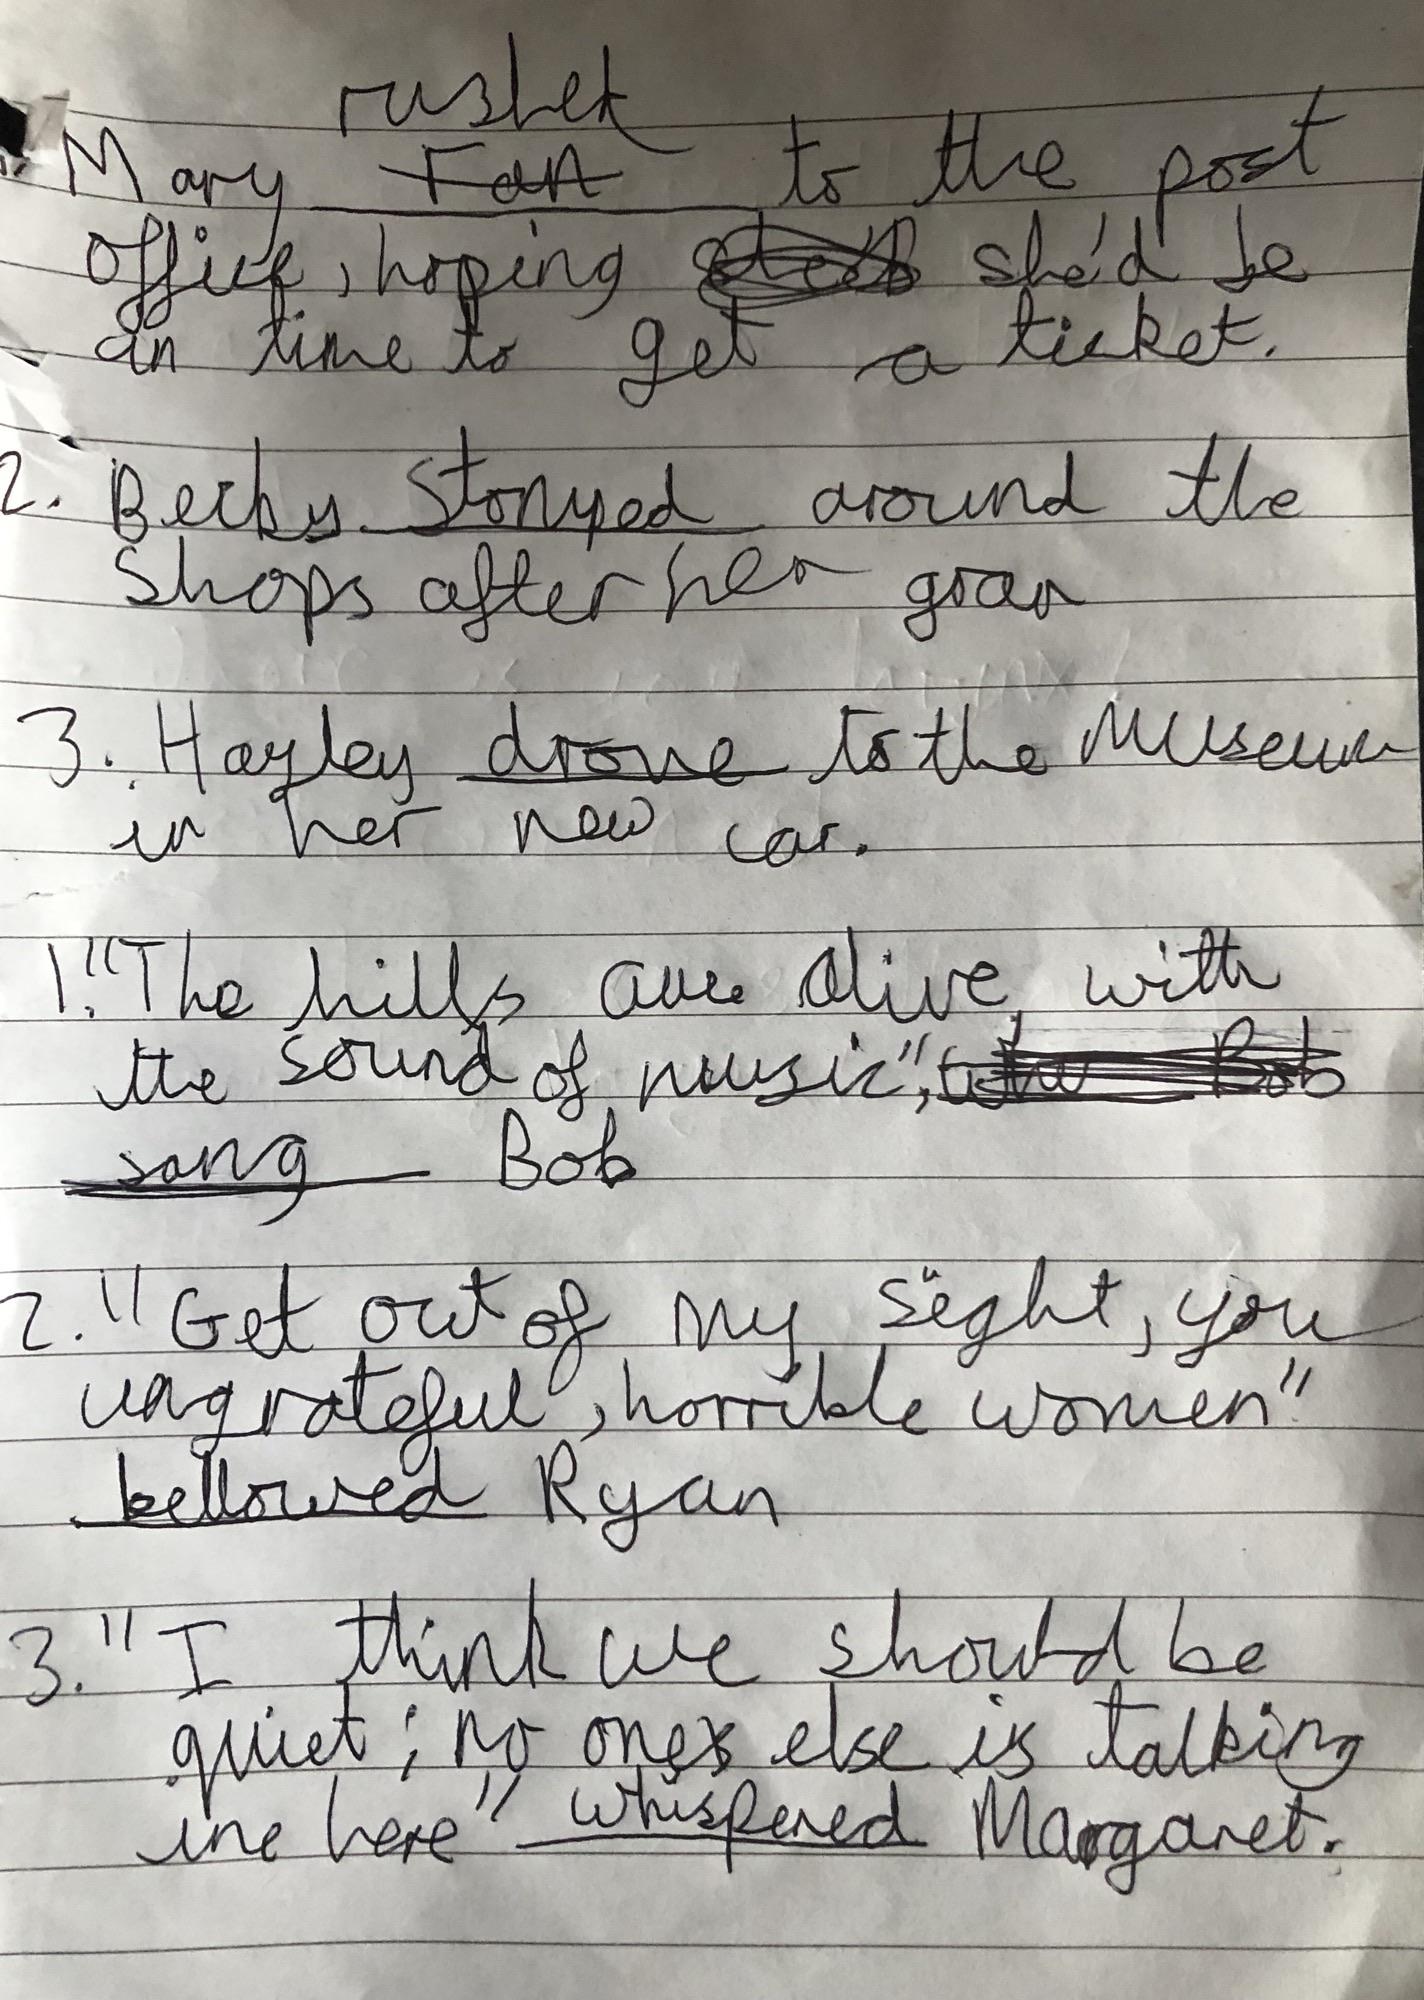 rushed
1. Mary ran to the post
office, hoping she'd be
in time to get a ticket.
2. Becky stomped around the
shops after her gran
3. Hayley drove to the Museum
in her new car.
1. "The hills are alive, with
the sound of music", Bob
sang Bob
2. "Get out of my sight, you
ungrateful, horrible women"
bellowed Ryan
3. "I think we should be
quiet; no ones else is talking
ine here" whispered Margaret.